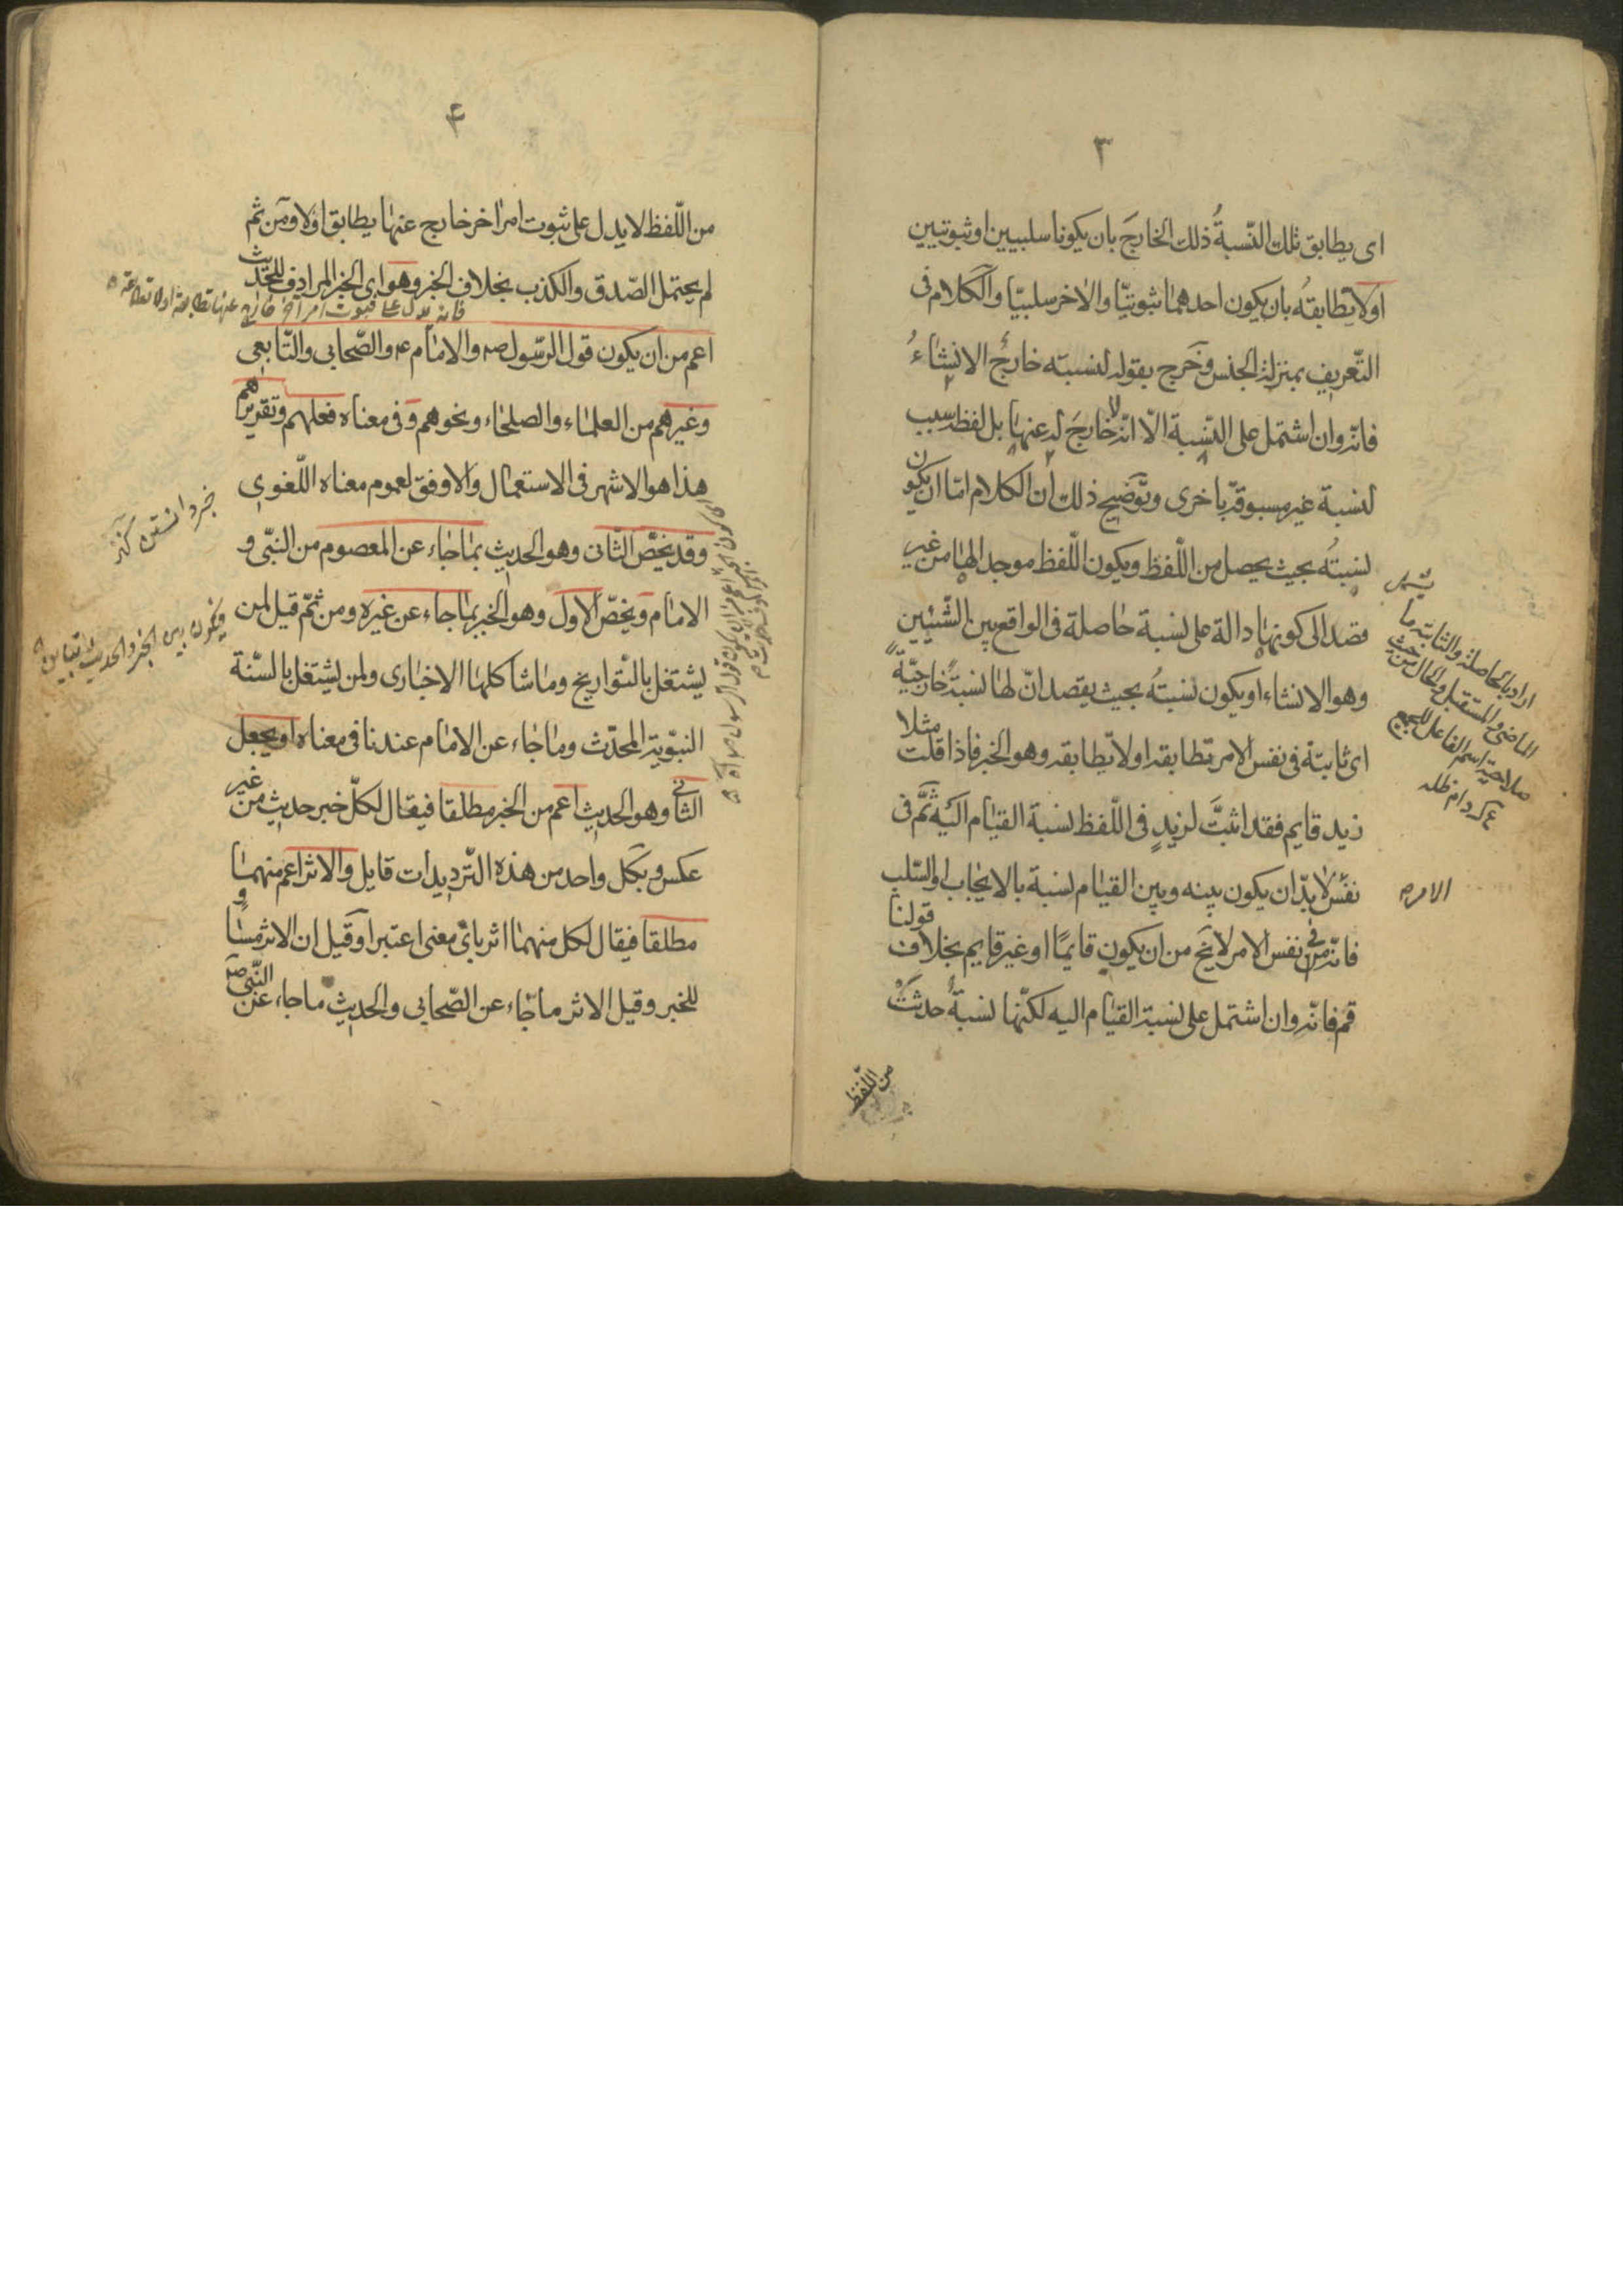 ٣
اى يطابق تلك النّسبةُ ذلك الخارجَ بان يكونا سلبيين او ثبوتيين
اولا يطابقهُ بان يكون احدهما ثبوتيّا والاخر سلبيّا والكلام فى
التّعريف بمنزلة الجنس وخرج بقوله لنسبته خارجٌ الانشاءُ
فانّه وان اشتمل على النّسبة الّا انّه لا خارجَ له عنها بل لفظه سبب
لنسبة غير مسبوقة باخرى وتوضيح ذلك ان الكلام امّا ان يكون
نسبتُه بحيث يحصل من اللّفظ ويكون اللّفظ موجدا لها من غير
قصد الى كونها دالة على نسبة حاصلة فى الواقع بين الشّيئين
وهو الانشاء او يكون نسبتُه بحيث يقصد انّ لها نسبةً خارجيّةً
اى ثابتة فى نفس الامر تطابقه اولا تطابقه وهو الخبر فاذا قلت مثلا
زيد قايم فقد اثبتَّ لزيدٍ فى اللّفظ نسبة القيام اليه ثمَّ فى
نفس لا بدّ ان يكون بينه وبين القيام نسبة بالايجاب او السّلب
فانّه فى نفس الامر لا يخ من ان يكون قايمًا او غير قايم بخلاف قولنا
قم فانّه وان اشتمل على نسبة القيام اليه لكنّها نسبةٌ حدثتْ
من اللّفظ
يشمل
اراد بالحاصلة والثابتة ما
الماضى والمستقبل والحال من حيث
صلاحية اسم الفاعل للجميع
دام ظله
الامر
۴
من اللّفظ لا يدل على ثبوت امر اخر خارج عنها يطابق اولا ومن ثم
لم يحتمل الصّدق والكذب بخلاف الخبر وهو اى الخبر المرادف للحديث
فانه يدل على ثبوت امر اخر خارج عنها تطابقه اولا تطابقه
اعم من ان يكون قول الرّسول ص والامام ع والصّحابى والتّابعى
وغيرهم من العلماء والصلحاء ونحوهم وفى معناه فعلهم وتقريرهم
هذا هو الاشهر فى الاستعمال والاوفق لعموم معناه اللّغوى
وقد يخصّ الثّانى وهو الحديث بما جاء عن المعصوم من النبّى و
الامام ويخصّ الاول وهو الخبر بما جاء عن غيره ومن ثمّ قيل لمن
يشتغل بالتواريخ وما شاكلها الاخبارى ولمن يشتغل بالسّنة
النبّوية المحدّث وما جاء عن الامام عندنا فى معناه او يجعل
الثانى وهو الحديث اعم من الخبر مطلقا فيقال لكلّ خبر حديث من غير
عكس وبكل واحد من هذه التّرديدات قايل والاثر اعم منهما
مطلقا فيقال لكل منهما اثر باىّ معنى اعتبر او قيل ان الاثر مساو
للخبر وقيل الاثر ما جاء عن الصّحابى والحديث ما جاء عن النّبى ص
فيكون بين الخبر والحديث تباين